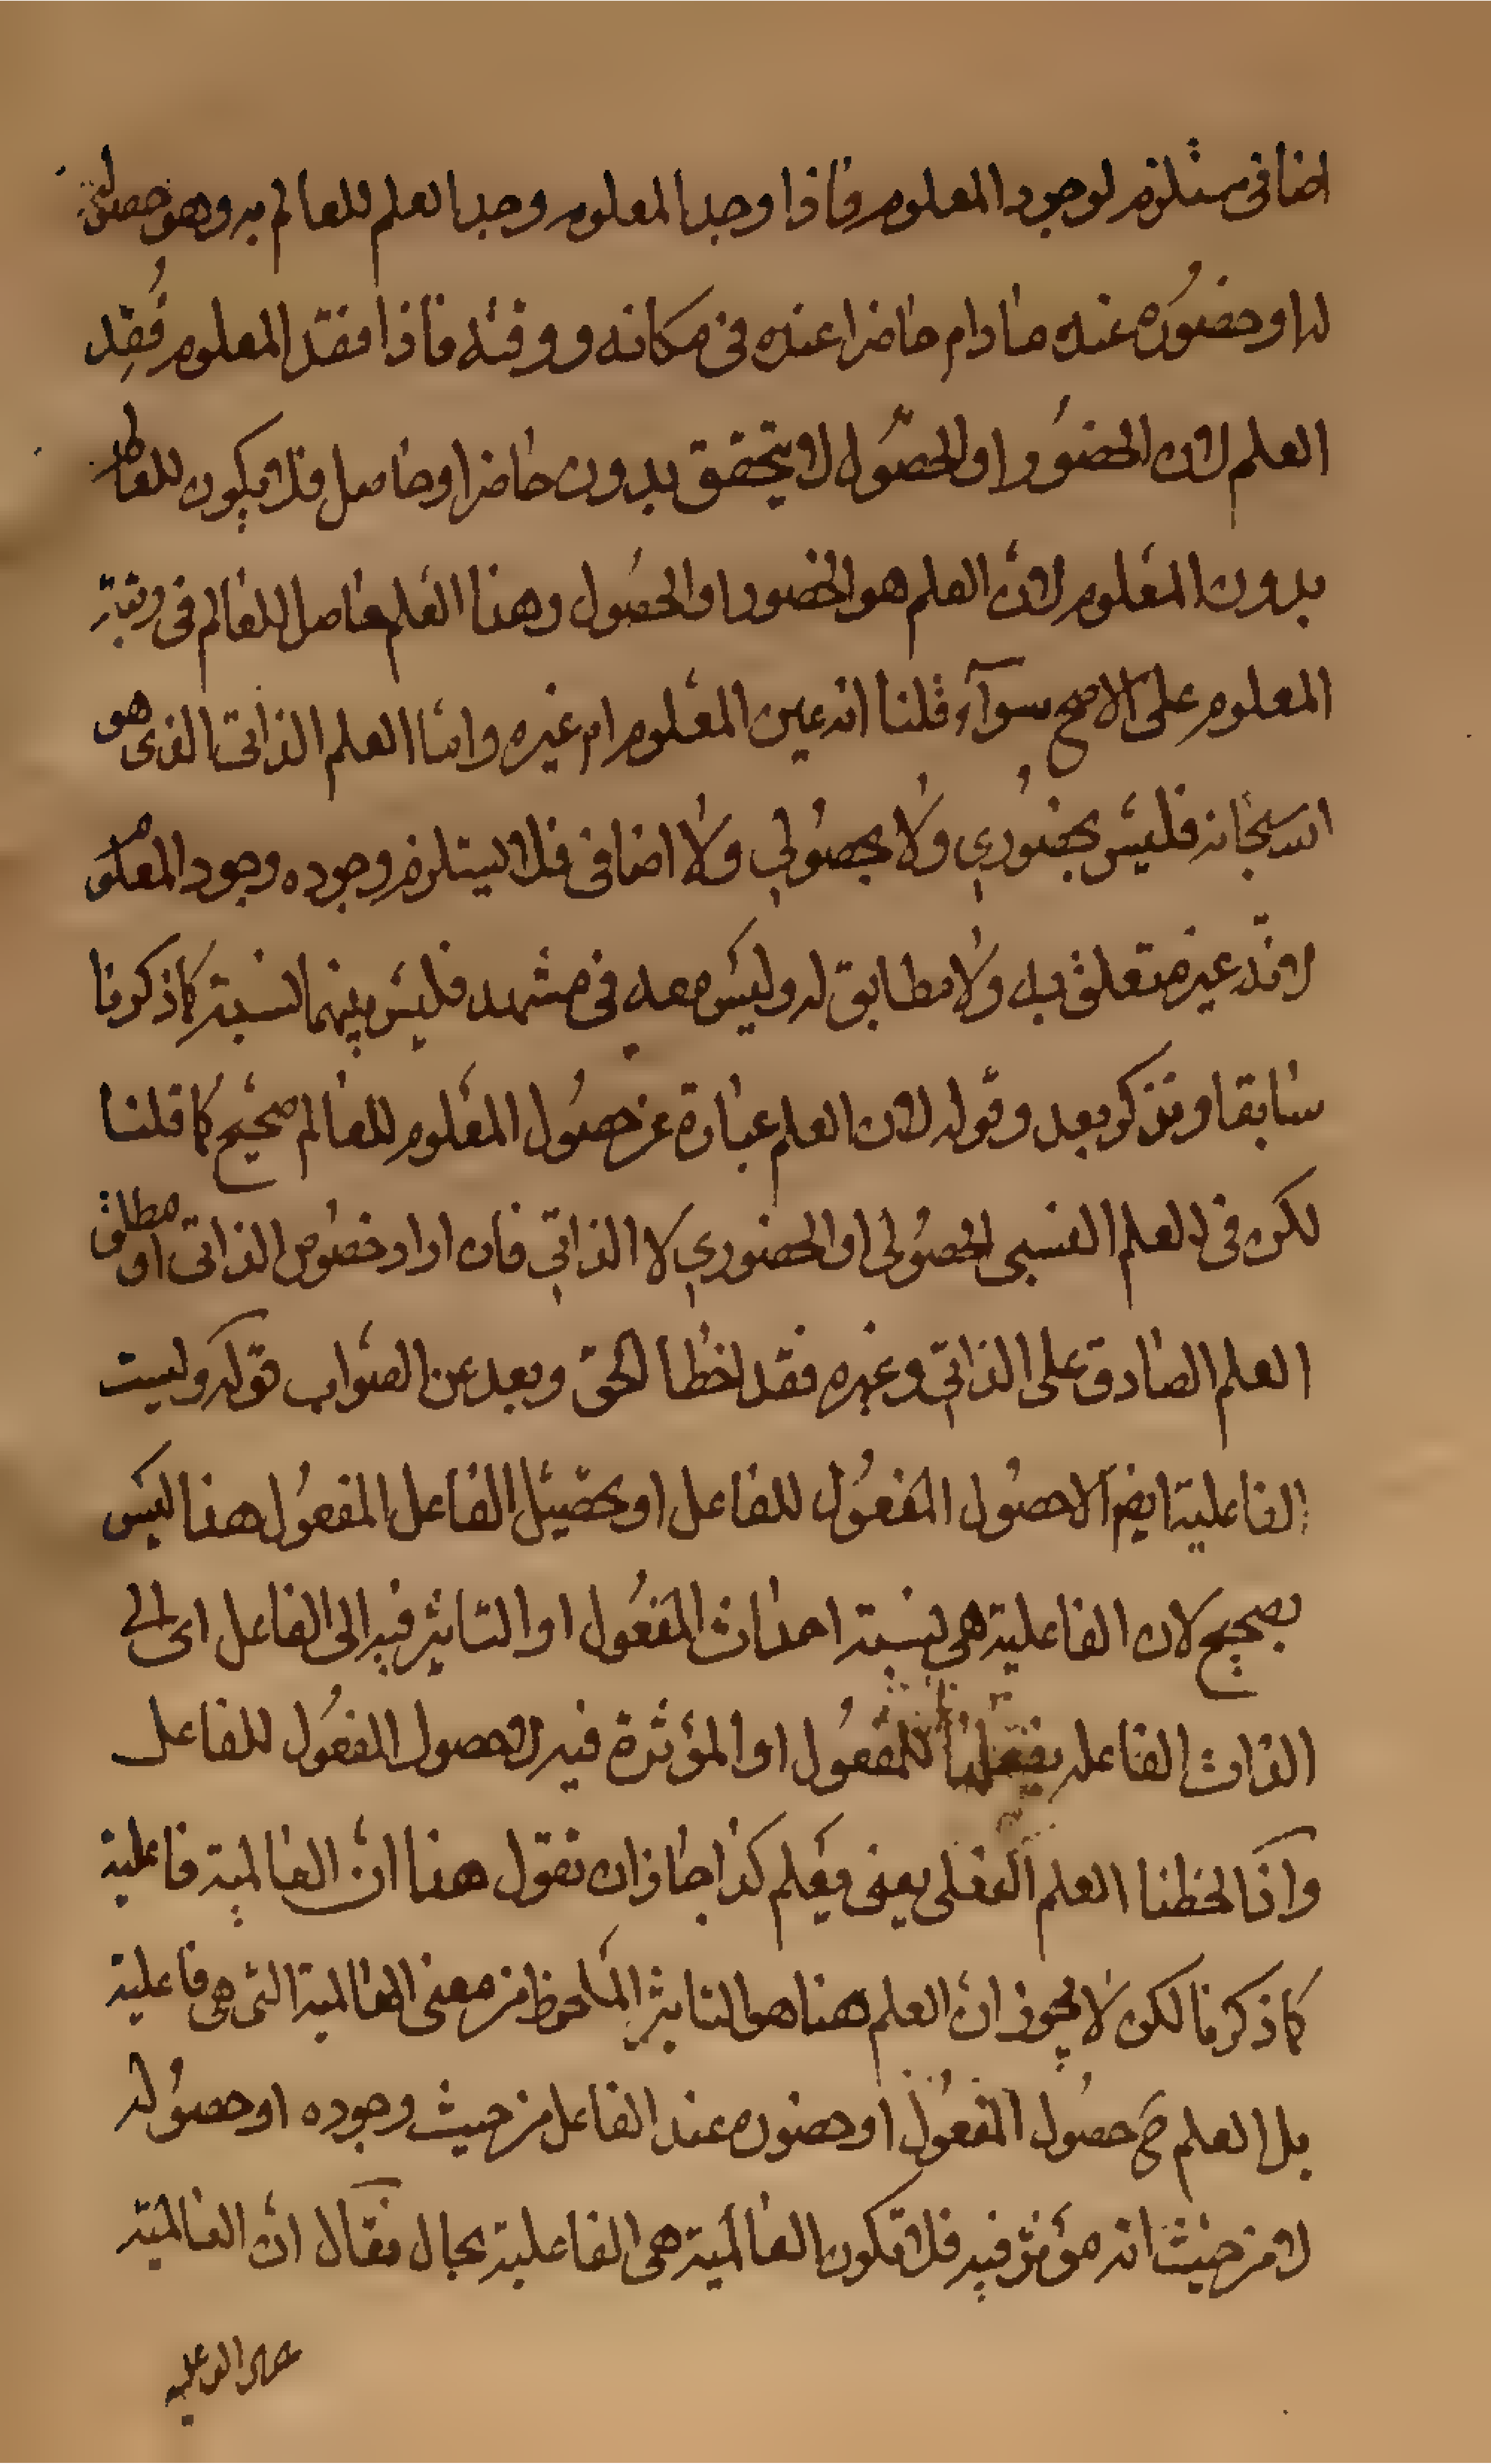 اضافى مستلزم لوجود المعلوم فاذا وجد المعلوم وجد العلم للعالم به وهو حصوله
له او حضوره عنده ما دام حاضرا عنده فى مكانه ووقته فاذا فقد المعلوم فُقِد
العلم لان الحضور او الحصول لا يتحقق بدون حاضر او حاصل فلا يكون للعالم
بدون المعلوم لان العلم هو الحضور او الحصول وهذا العلم حاصل للعالم فى رتبة
المعلوم على الاصح سوآء قلنا انه عين المعلوم ام غيره وامّا العلم الذاتى الذى هو
الله سبحانه فليس بحضوري ولا بحصولي ولا اضافى فلا يستلزم وجوده وجود المعلوم
لانه غير متعلق به ولا مطابق له وليس معه فى مشهد فليس بينهما نسبة كما ذكرنا
سابقا ونذكر بعد وقوله لان العلم عبارة عن حصول المعلوم للعالم صحيح كما قلنا
لكن فى العلم النسبى الحصولى او الحضوري لا الذاتي فان اراد خصوص الذاتى او مطلق
العلم الصادق على الذاتي وغيره فقد اخطا الحق وبعد عن الصواب قوله وليست
الفاعلية ايضا الا حصول المفعول للفاعل او تحصيل الفاعل المفعول هذا ليس
بصحيح لان الفاعلية هى نسبة احداث المفعول او التاثير فيه الى الفاعل اى الى
الذات الفاعله بفعلها للمفعول او المؤثرة فيه لا حصول المفعول للفاعل
واذا لحظنا العلم الفعلى يعنى يعلم كذا جاز ان نقول هنا انّ العالمية فاعلية
كما ذكرنا لكن لا يجوز ان العلم هنا هو التاثير الملحوظ من معنى العالمية التى هى فاعلية
بل العلم ح حصول المفعول او حضوره عند الفاعل من حيث وجوده او حصوله
لا من حيث انه مؤثر فيه فلا تكون العالمية هى الفاعلية بحال فقال ان العالمية